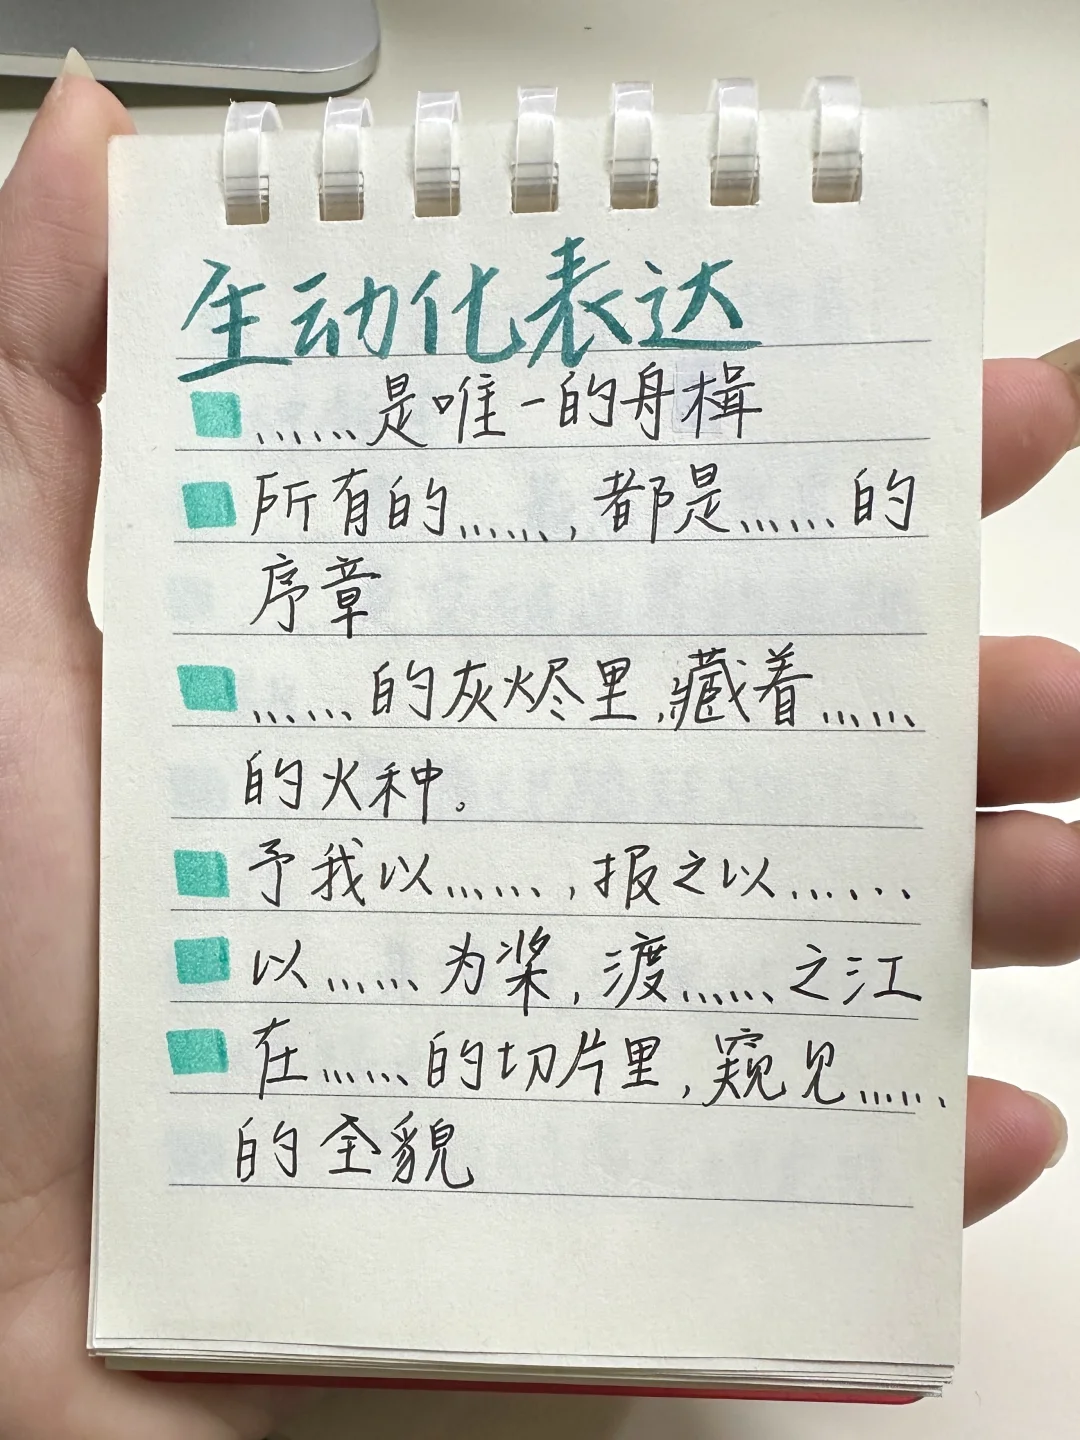 生动化表达
......是唯一的舟楫
所有的......,都是......的
序章
......的灰烬里,藏着......
的火种。
予我以......,报之以......
以......为桨,渡......之江
在......的切片里,窥见......
的全貌